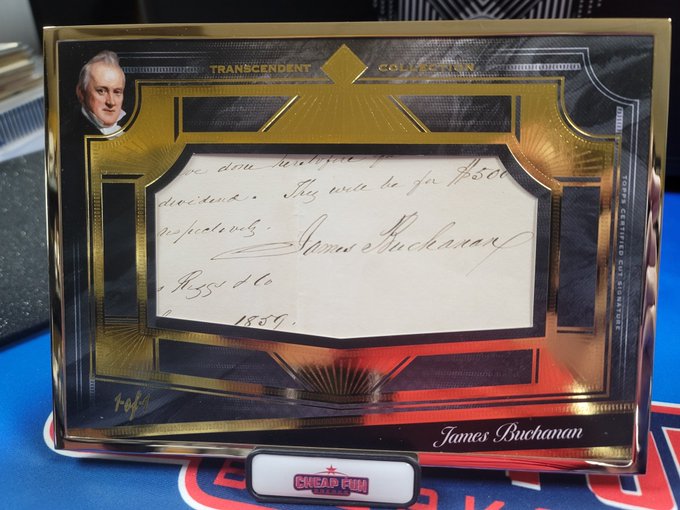 TRANSCENDENT COLLECTION
done heretofore
dividend. They will be for $500
respectively.
James Buchanan
Riggs & Co
1859.
TOPPS CERTIFIED CUT SIGNATURE
1 of 1
James Buchanan
CHEAP FUN
BREAKS